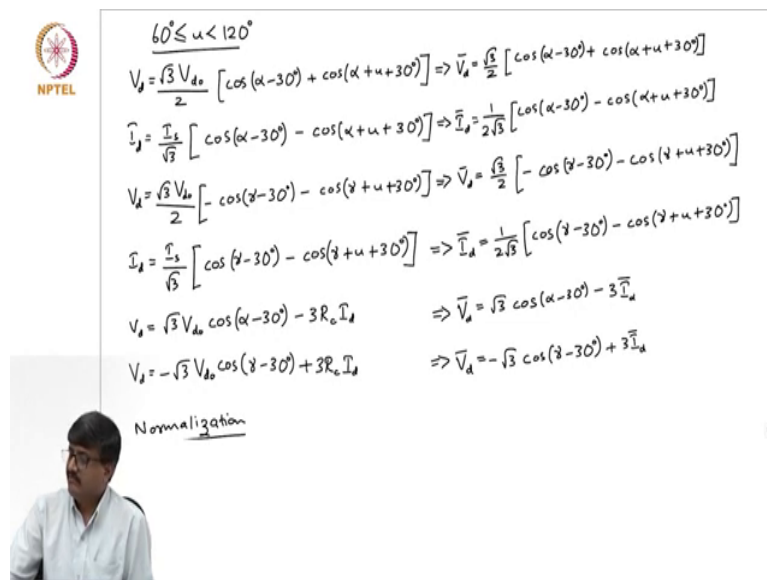 60° ≤ u < 120°
V_d = √3 V_do / 2 [cos(α-30°) + cos(α+u+30°)] => V̄_d = √3/2 [cos(α-30°) + cos(α+u+30°)]
NPTEL
I_d = I_s/√3 [cos(α-30°) - cos(α+u+30°)] => Ī_d = 1/2√3 [cos(α-30°) - cos(α+u+30°)]
V_d = √3 V_do / 2 [-cos(γ-30°) - cos(γ+u+30°)] => V̄_d = √3/2 [-cos(γ-30°) - cos(γ+u+30°)]
I_d = I_s/√3 [cos(γ-30°) - cos(γ+u+30°)] => Ī_d = 1/2√3 [cos(γ-30°) - cos(γ+u+30°)]
V_d = √3 V_do cos(α-30°) - 3R_c I_d => V̄_d = √3 cos(α-30°) - 3Ī_d
V_d = -√3 V_do cos(γ-30°) + 3R_c I_d => V̄_d = -√3 cos(γ-30°) + 3Ī_d
Normalization